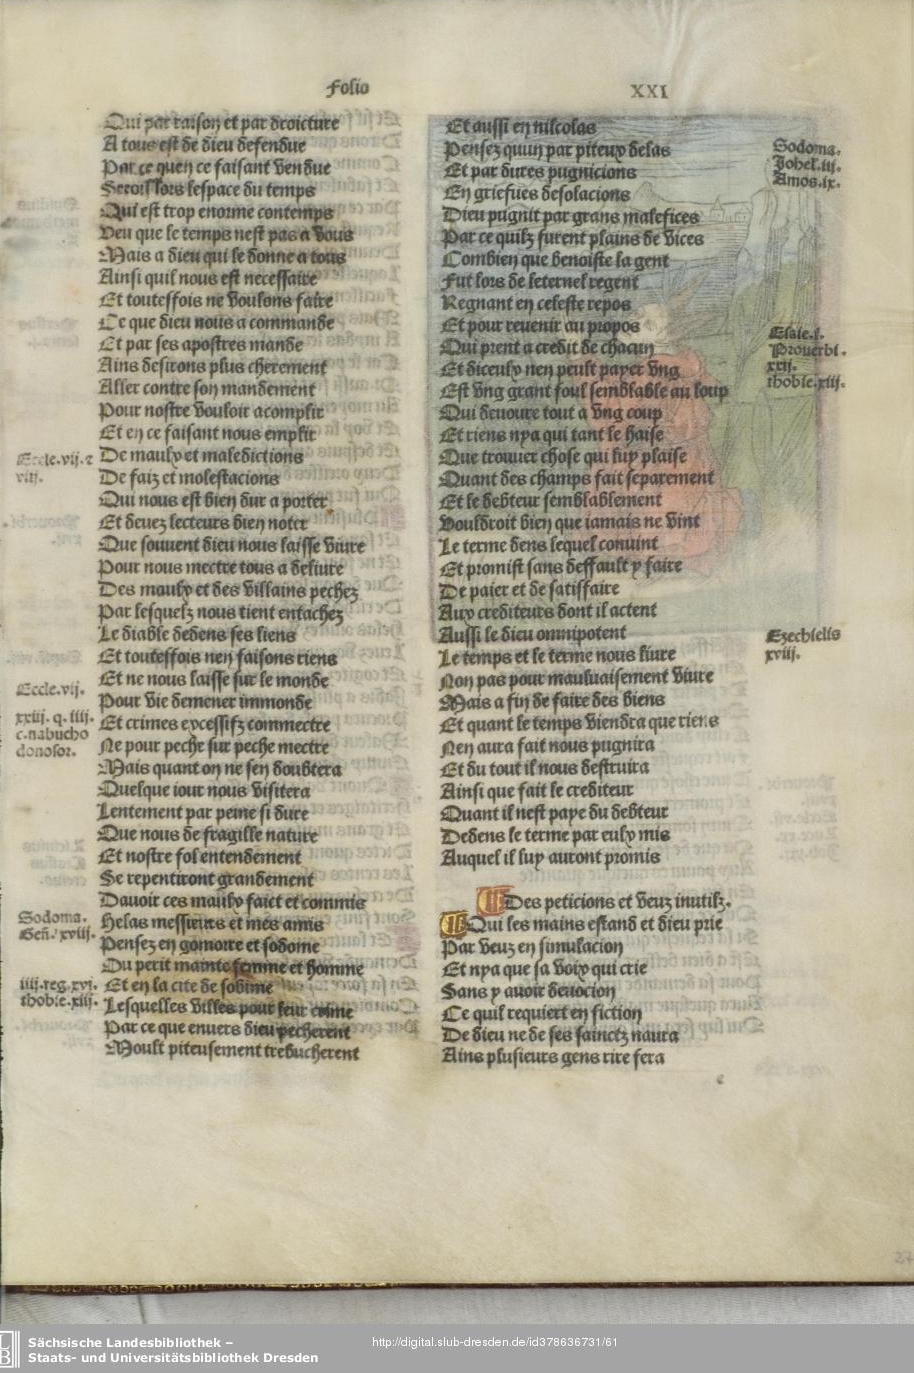 Folio
XXI
Qui par raison et par droicture
A tous est de dieu defendue
Par ce quen ce faisant vendue
Seroit lors lespace du temps
Qui est trop enorme contemps
Veu que le temps nest pas a vous
Mais a dieu qui le donne a tous
Ainsi quil nous est necessaire
Et toutesfois ne voulons faire
Ce que dieu nous a commande
Et par ses apostres mande
Ains desirons plus cherement
Aller contre son mandement
Pour nostre vouloir acomplir
Et en ce faisant nous emplir
De maulx et maledictions
De faiz et molestacions
Qui nous est bien dur a porter
Et devez lecteurs bien noter
Que souvent dieu nous laisse vivre
Pour nous mectre tous a delivre
Des maulx et des villains pechez
Par lesquelz nous tient entachez
Le diable dedens ses liens
Et toutesfois nen faisons riens
Et ne nous laisse sur le monde
Pour vie demener immonde
Et crimes excessifz commectre
Ne pour peche sur peche mectre
Mais quant on ne sen doubtera
Quelque iour nous visitera
Lentement par peine si dure
Que nous de fragille nature
Et nostre fol entendement
Se repentiront grandement
Davoir ces maulx faict et commis
Helas messieurs et mes amis
Pensez en gomorre et sodome
Ou perit mainte femme et homme
Et en la cite de sodime
Lesquelles villes pour leur crime
Par ce que envers dieu pecherent
Moult piteusement trebucherent
Eccle.vij. z
viij.
Eccle.vij.
xxiij. q. iiij.
c.nabucho
donosor.
Sodoma.
Gen. xviij.
iiij.reg.xvi.
thobie.xiii.
Et aussi en nilcolas
Pensez quun par piteux delas
Et par dures pugnicions
En griefues desolacions
Dieu pugnit par grans malefices
Par ce quilz furent plains de vices
Combien que benoiste la gent
Fut lors de leternel regent
Regnant en celeste repos
Et pour revenir au propos
Qui prent a credit de chacun
Et diceulx nen peult payer ung
Est ung grant foul semblable au loup
Qui devoure tout a ung coup
Et riens nya qui tant le haise
Que trouver chose qui luy plaise
Quant des champs fait separement
Et le debteur semblablement
Vouldroit bien que iamais ne vint
Le terme dens lequel convint
Et promist sans deffault y faire
De paier et de satisfaire
Aux crediteurs dont il actent
Aussi le dieu omnipotent
Le temps et le terme nous livre
Non pas pour maulvaisement vivre
Mais a fin de faire des biens
Et quant le temps viendra que riens
Nen aura fait nous pugnira
Et du tout il nous destruira
Ainsi que fait le crediteur
Quant il nest paye du debteur
Dedens le terme par eulx mis
Auquel il luy auront promis
Des peticions et veuz inutilz.
Qui les mains estand et dieu prie
Par veuz en simulacion
Et nya que sa voix qui crie
Sans y avoir devocion
Ce quil requiert en fiction
De dieu ne de ses sainctz naura
Ains plusieurs gens rire fera
Sodoma.
Johel.iij.
Amos.ix.
Esaie.l.
Proverbi.
xxij.
thobie.xiij.
Ezechielis
xviij.
Sächsische Landesbibliothek –
Staats- und Universitätsbibliothek Dresden
http://digital.slub-dresden.de/id378636731/61